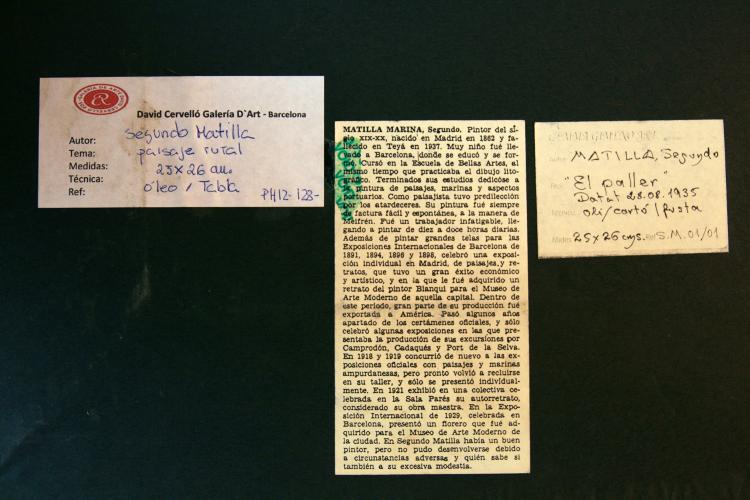 David Cervelló Galería D`Art - Barcelona
Autor: Segundo Matilla
Tema: paisaje rural
Medidas: 25x26 cm.
Técnica: óleo / Tabla
Ref: PH12-128-
MATILLA MARINA, Segundo. Pintor del si-
glo XIX-XX, nacido en Madrid en 1862 y fa-
llecido en Teyá en 1937. Muy niño fué lle-
vado a Barcelona, donde se educó y se for-
mó. Cursó en la Escuela de Bellas Artes, al
mismo tiempo que practicaba el dibujo lito-
gráfico. Terminados sus estudios dedicóse a
pintura de paisajes, marinas y aspectos
Como paisajista tuvo predilección
por los atardeceres. Su pintura fué siempre
factura fácil y espontánea, a la manera de
Meifrén. Fué un trabajador infatigable, lle-
gando a pintar de diez a doce horas diarias.
Además de pintar grandes telas para las
Exposiciones Internacionales de Barcelona de
1891, 1894, 1896 y 1898, celebró una exposi-
ción individual en Madrid, de paisajes,y re-
tratos, que tuvo un gran éxito económico
y artístico, y en la que le fué adquirido un
retrato del pintor Blanqui para el Museo de
Arte Moderno de aquella capital. Dentro de
este período, gran parte de su producción fué
exportada a América. Pasó algunos años
apartado de los certámenes oficiales, y sólo
celebró algunas exposiciones en las que pre-
sentaba la producción de sus excursiones por
Camprodón, Cadaqués y Port de la Selva.
En 1918 y 1919 concurrió de nuevo a las ex-
posiciones oficiales con paisajes y marinas
ampurdanesas, pero pronto volvió a recluirse
en su taller, y sólo se presentó individual-
mente. En 1921 exhibió en una colectiva ce-
lebrada en la Sala Parés su autorretrato,
considerado su obra maestra. En la Expo-
sición Internacional de 1929, celebrada en
Barcelona, presentó un florero que fué ad-
quirido para el Museo de Arte Moderno de
la ciudad. En Segundo Matilla había un buen
pintor, pero no pudo desenvolverse debido
a circunstancias adversas y quién sabe si
también a su excesiva modestia.
MATILLA, Segundo
"El paller"
Datat 28.08.1935
oli/cartó/fusta
25x26 cms. Ref S.M. 01/01